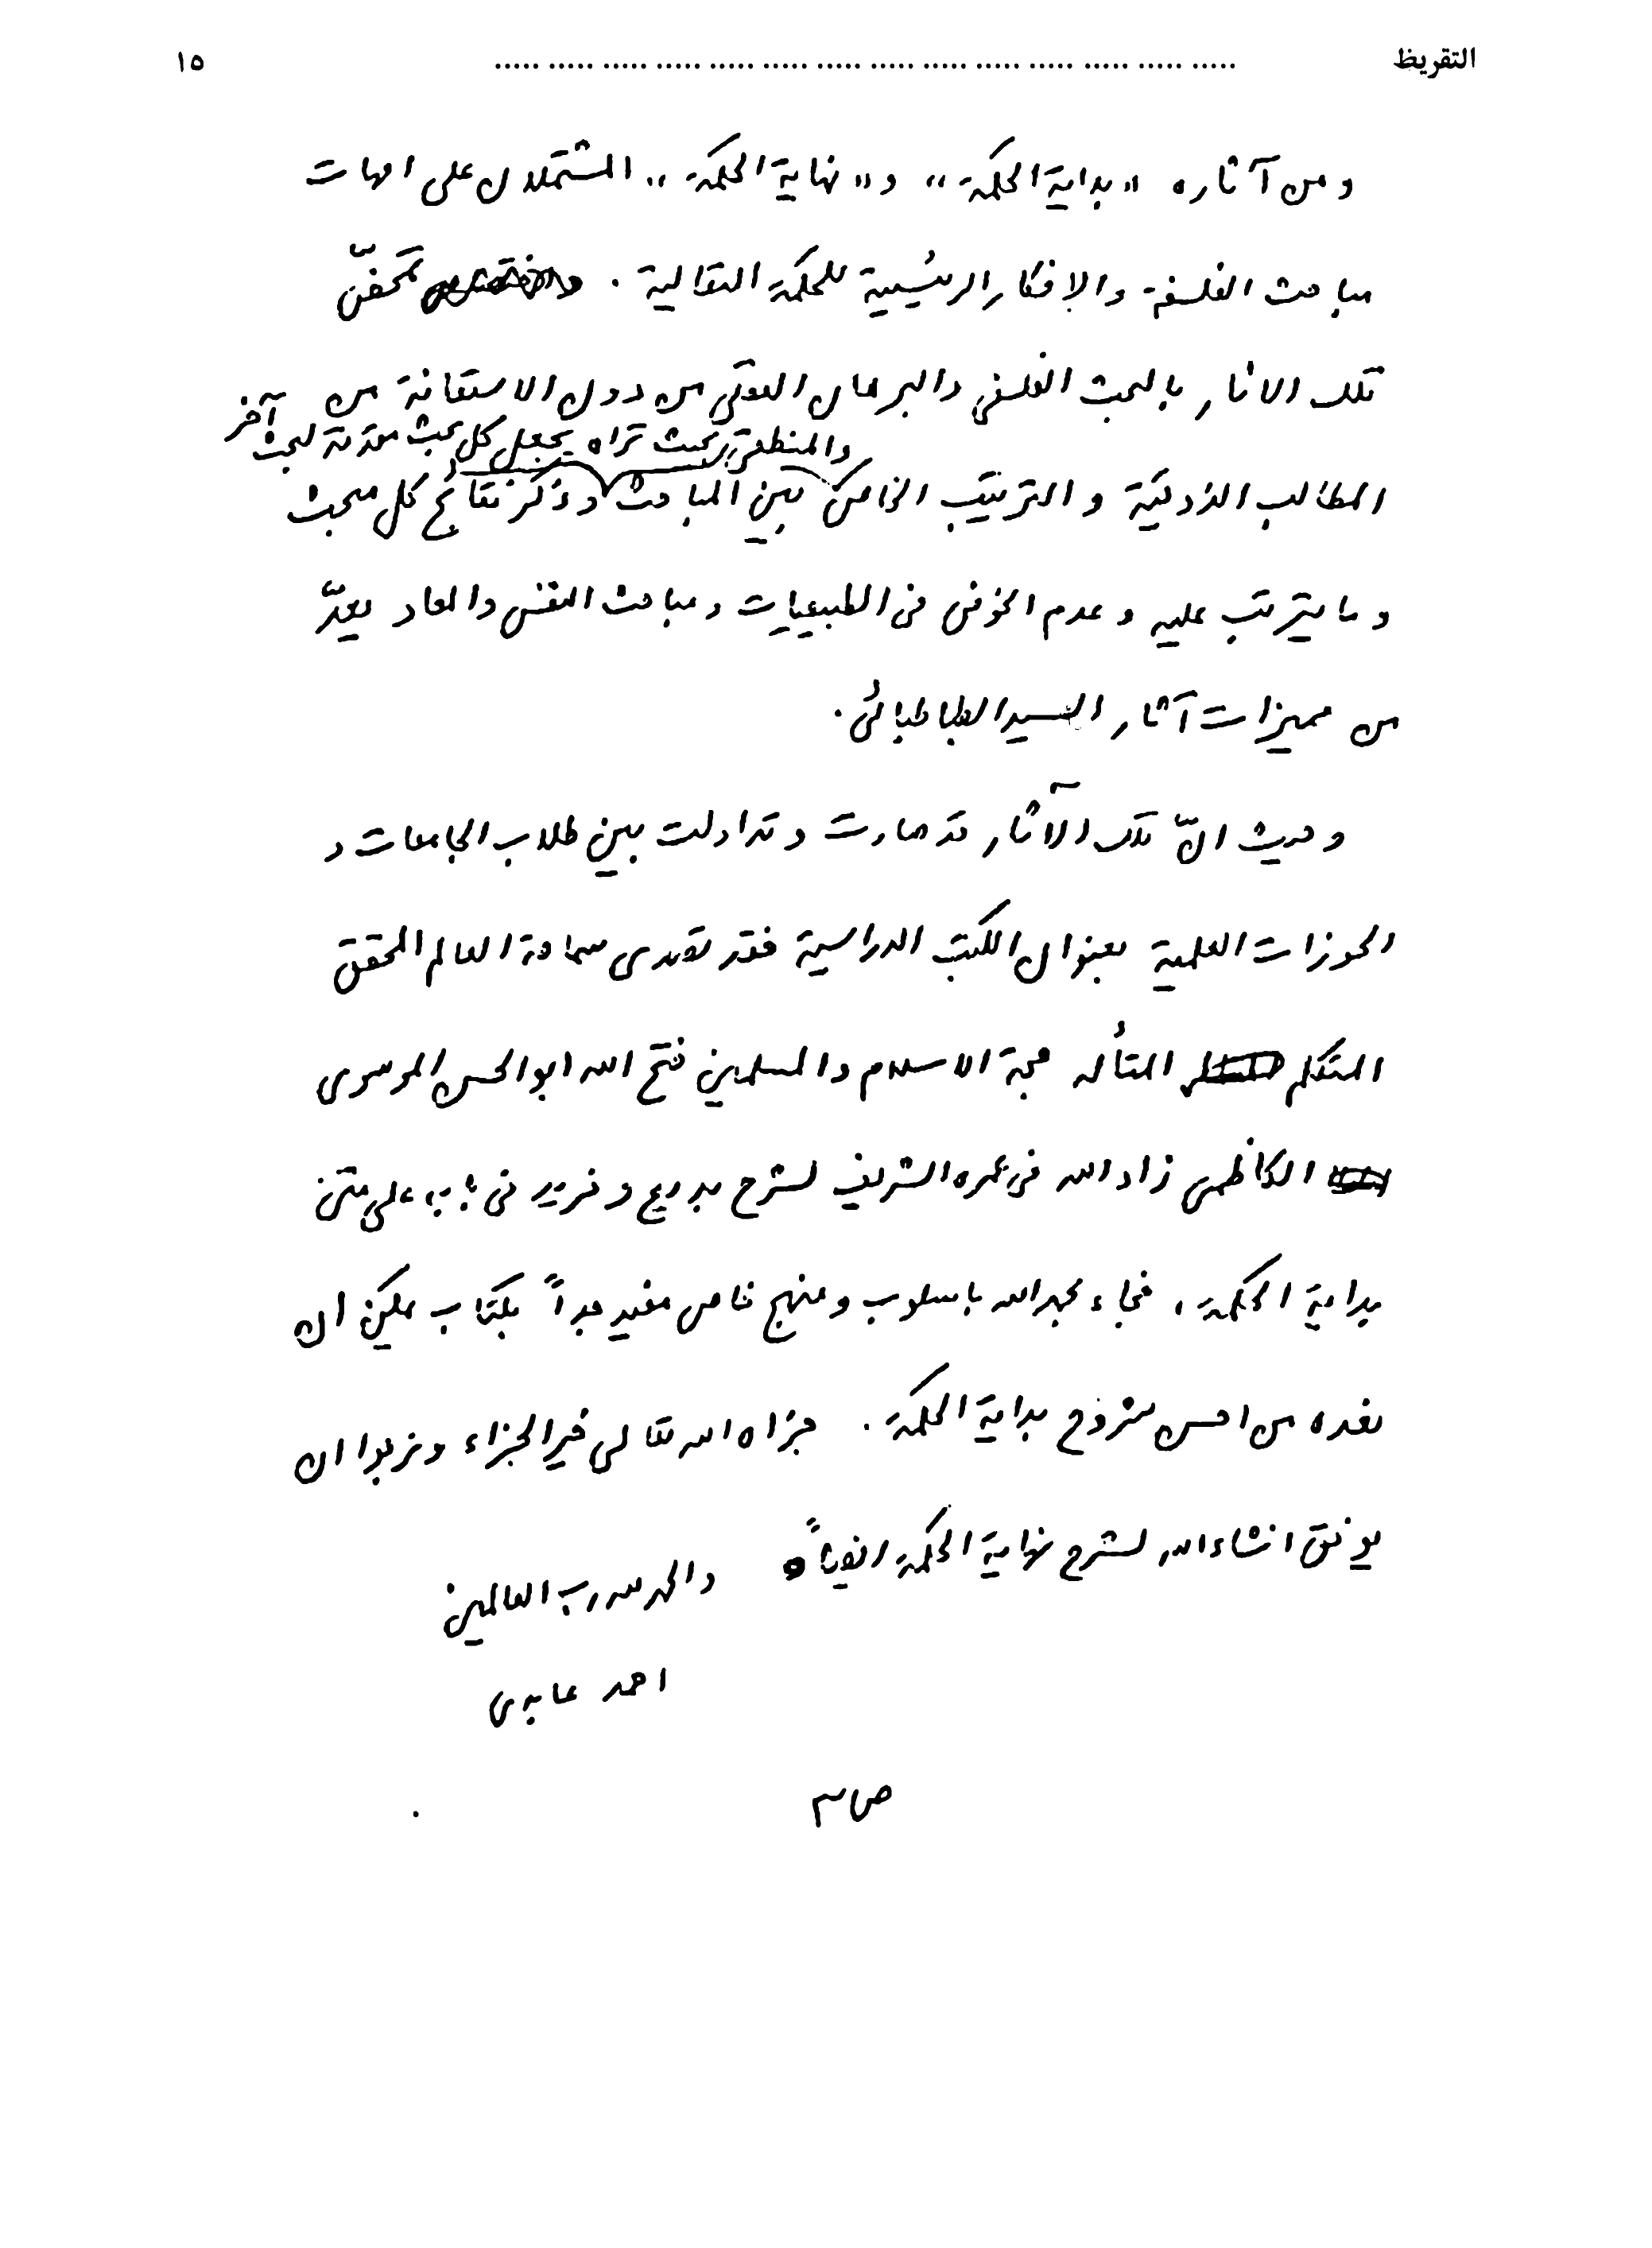 التقريظ ..... ..... ..... ..... ..... ..... ..... ..... ..... ..... ..... ..... ..... ..... ١٥
و من آثاره «بداية الحكمة» و «نهاية الحكمة» المشتملان على امهات
مباحث الفلسفة والافكار الرئيسية للحكمة المتعالية . تمحّض
تلك الاثار بالبحث الفلسفي والبرهان العقلي من دون الاستعانة من
والمنطقي بحيث تراه يجعل كل بحث مقدمة لبحث آخر
المطالب الذوقية و الترتيب الخاص بين المباحث و ذكر نتائج كل مبحث
و ما يترتب عليه و عدم الخوض في الطبيعيات و مباحث النفس والمعاد يعدّ
من مميزات آثار السيد الطباطبائي .
و حيث انّ تلك الآثار قد صارت و تداولت بين طلاب الجامعات و
الحوزات العلمية بعنوان الكتب الدراسية فقد تصدى سماحة العالم المحقق
المتكلم المتأله حجة الاسلام والمسلمين فتح الله ابوالحسن الموسوى
الكاظمى زاد الله في عمره الشريف لشرح بديع و فريد في بابه على متن
بداية الحكمة، فجاء بحمدالله باسلوب و منهج خاص مفيد جداً بكتاب يمكن ان
نعده من احسن شروح بداية الحكمة . جزاه الله تعالى خير الجزاء و نرجوا ان
يوفق انشاءالله لشرح نهاية الحكمة ايضاً والحمدلله رب العالمين
احمد عابدى